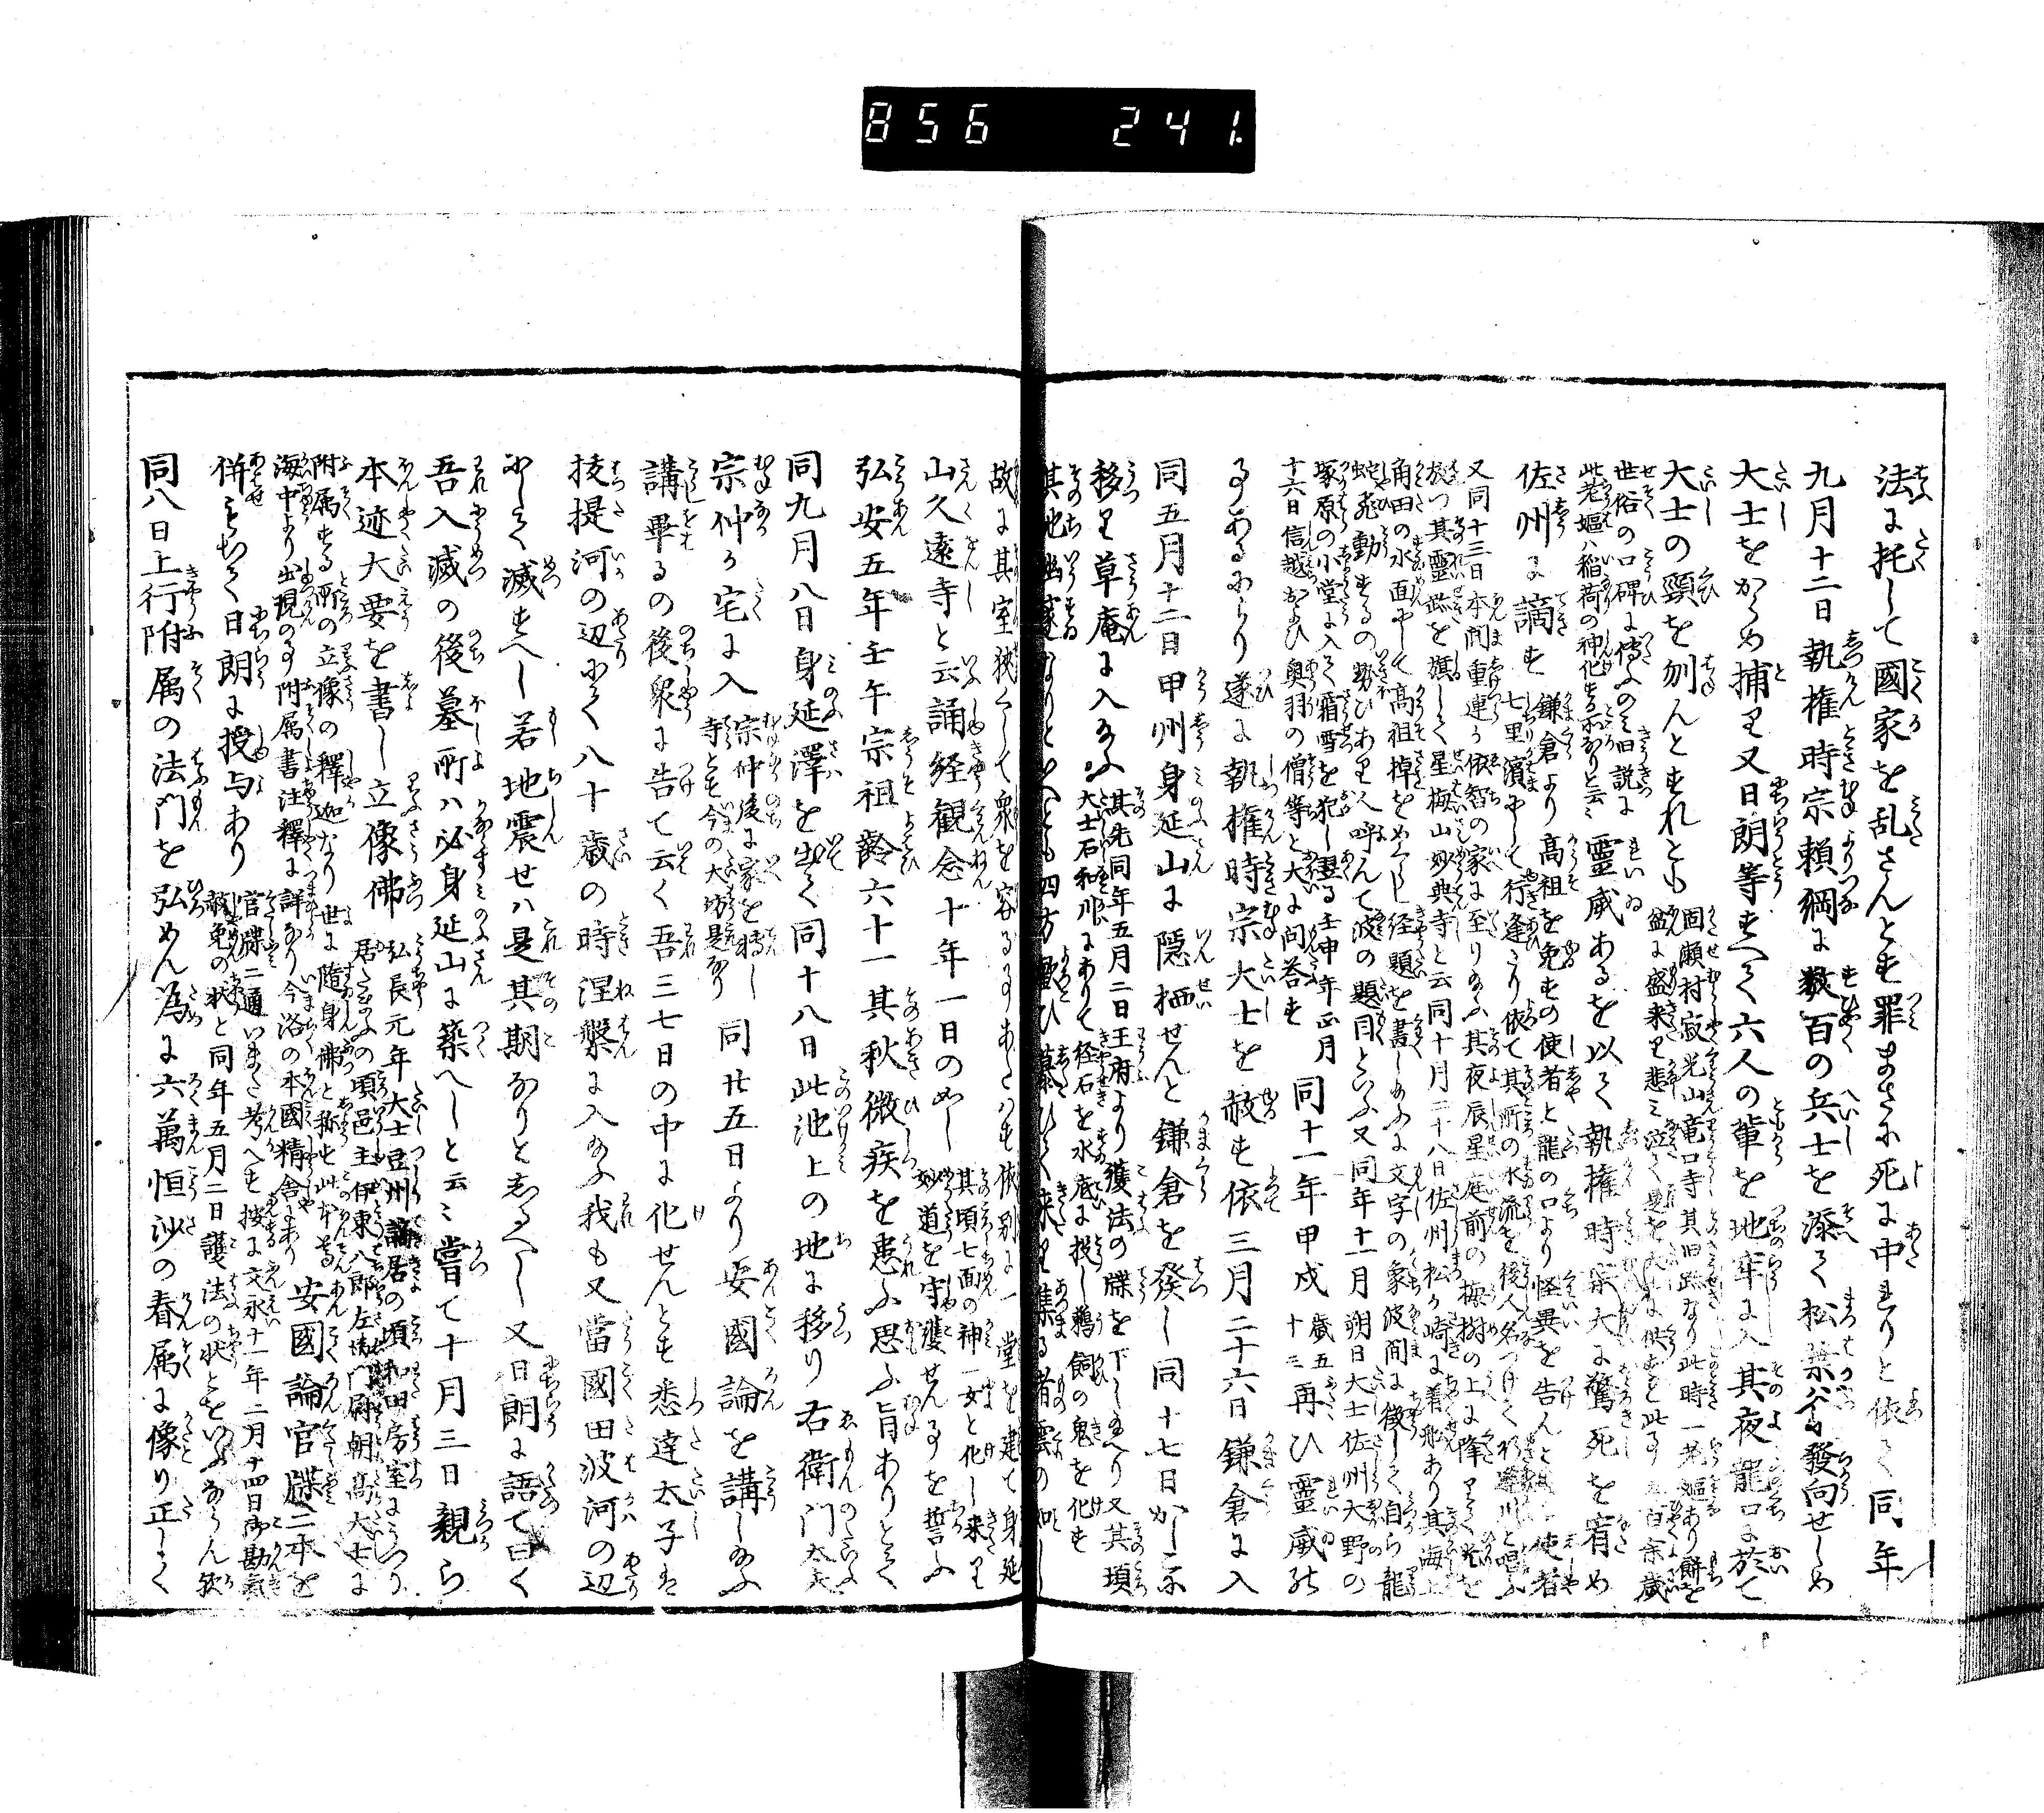 856 241
法に托して國家を乱さんとす罪まさに死に中れりと依て同年
九月十二日執権時宗頼綱に数百の兵士を添て松葉谷發向せしめ
大士をからめ捕り又日朗等すへて六人の輩を地牢に入其夜龍口に於て
大士の頸を刎んとすれとも
固瀬村寂光山竜口寺其旧跡なり此時一老嫗あり餅を
盆に盛来り悲み泣て是を大士に供すと此事
世俗の口碑に傳ふのミ旧説に
此老嫗ハ稲荷の神化する所なりと云云
靈威あるを以て執権時宗大に驚死を宥め
佐州に謫す
鎌倉より高祖を免すの使者と龍の口より怪異を告んと
使者
七里濱にて行逢たり依て其所の水流を後人名つけて行逢川と唱ふ
又同十三日本間重連か依智の家に至り
其夜辰星庭前の梅樹の上に降りて光を
放つ其靈跡を旗して星梅山妙典寺と云同十月二十八日佐州松か崎に着船あり其海上
角田の水面にて高祖棹をめくらし経題を書し
文字の象波間に徴して自ら龍
蛇飛動するの勢ひあり人呼んて波の題目といふ又同年十一月朔日大士佐州大野の
塚原の小堂に入て霜雪を犯し翌る壬申年正月
十六日信越および奥羽の僧等と大に问答す
同十一年甲戌
歳五
十三
再ひ靈威の
事あるにより遂に執権時宗大士を赦す依三月二十六日鎌倉に入
同五月十二日甲州身延山に隠栖せんと鎌倉を發し同十七日かしこに
移り草庵に入給ふ
其先同年五月二日王府より護法の牒を下し給へり又其頃
大士石和川にありて経石を水底に投し鵜飼の鬼を化す
其地幽邃なりといへとも四方歡ひ慕ひて来り集る者雲の如し
故に其室狭くして衆を容る事あたハす依別に一堂を建て身延
山久遠寺と云誦経観念十年一日の如し
其頃七面の神一女と化し来り
妙道を守護せん事を誓ふ
弘安五年壬午宗祖齡六十一其秋微疾を患ふ思ふ旨ありとて
同九月八日身延澤を出て同十八日此池上の地に移り右衛門大夫
宗仲か宅に入
宗仲後に家を捨し
寺とす今の大坊是なり
同廿五日より安國論を講し給ふ
講畢るの後衆に告て云く吾三七日の中に化せんとす悉達太子は
抜提河の辺にて八十歳の時涅槃に入給ふ我も又當國田波河の辺
にして滅すへし若地震せハ是其期なりとしるへし又日朗に語て曰く
吾入滅の後墓所ハ必身延山に築へしと云云嘗て十月三日親ら
本迹大要を書し立像佛
弘長元年大士豆州謫居の頃和田房室にうつり
居たまふの頃邑主伊東八郎左衛門尉朝高大士に
附属する所の立像の釋迦なり世に随身佛と称す此本尊
海中より出現の事附属書注釋に詳なり今洛の本國精舎にあり
安國論官牒二本を
併せて日朗に授与あり
官牒二通いまた考へす按に文永十一年二月十四日御勘氣
赦免の状と同年五月二日護法の状とをいふならん歟
同八日上行附属の法門を弘めん為に六萬恒沙の眷属に像り正しく